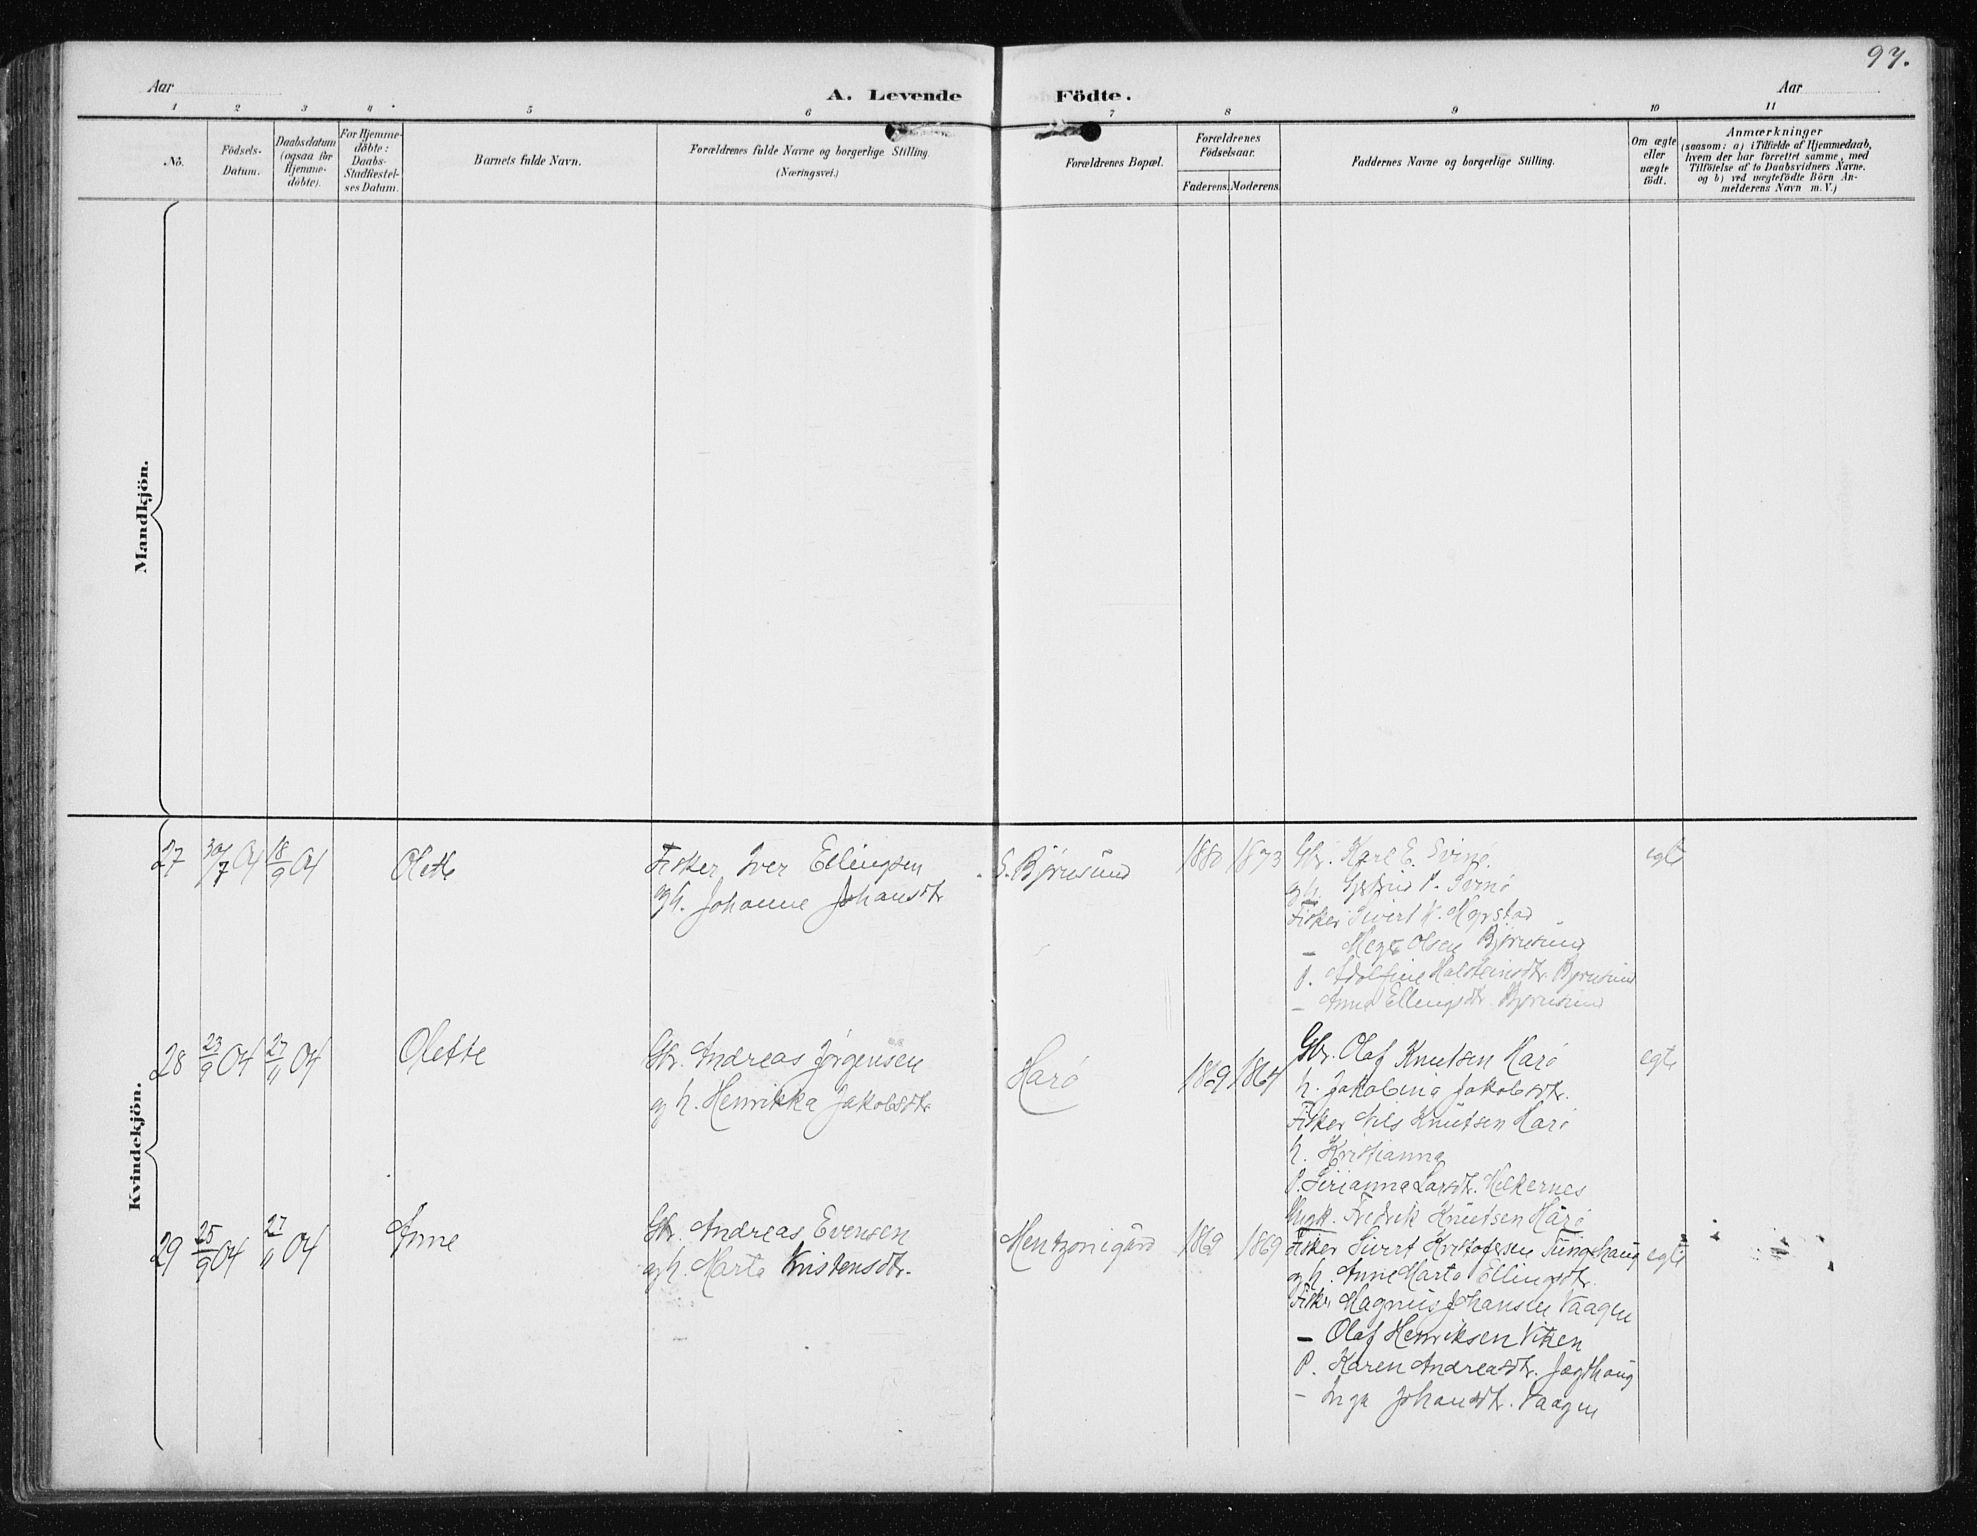 97.
Aar
A. Levende Födte.
Aar
1 2 3 4 5 6 7 8 9 10 11
No.
Födsels-Datum.
Daabsdatum (ogsaa for Hjemme-döbte).
For Hjemme-döbte: Daabs-Stadfæstel-ses Datum.
Barnets fulde Navn.
Forældrenes fulde Navne og borgerlige Stilling.
(Næringsvei.)
Forældrenes Bopæl.
Forældrenes Födselsaar.
Faderens. Moderens.
Faddernes Navne og borgerlige Stilling.
Om ægte eller uægte födt.
Anmærkninger
(saasom: a) i Tilfælde af Hjemmedaab,
hvem der har forrettet samme, med
Tilföielse af to Daabsvidners Navne,
og b) ved uægtefödte Börn An-
melderens Navn m. V.)
Mandkjön.
Kvindekjön.
27 30/7 04 18/9 04 Olette
Fisker Iver Ellingsen
og h. Johanne Johansdtr
S. Bjørnsund
1880 1873
Gbr. Karl E. Svinø.
og h. Gjertrud P. Svinø
Fisker Sivert K. Myrstad
— Olsen Bjørnsund
P. Adolfine Halsteinsdtr. Bjørnsund
— Anna Ellingsdtr. Bjørnsund
egte
28 23/9 04 27/11 04 Olette
Gbr. Andreas Jørgensen
og h. Henrikka Jakobsdtr
Harø
1869 1867
Gbr. Olaf Knutsen Harø
h. Jakobina Jakobsdtr.
Fisker Nils Knutsen Harø
h. Kristianna
P. Sirianna Larsdtr.
Ungk. Fredrik Knutsen Harø
egte
29 25/9 04 27/11 04 Anne
Gbr. Andreas Evensen
og h. Marta Kristensdtr.
Mentzonigård
1862 1869
Fisker Sivert Kristofersen
og h. Anne Marta Ellingsdtr.
Fisker Magnus Johansen Vaagen
— Olaf Henriksen Viken
P. Karen Andreasdtr. Jægthaug
— Inga Johansdtr. Vaagen
egte